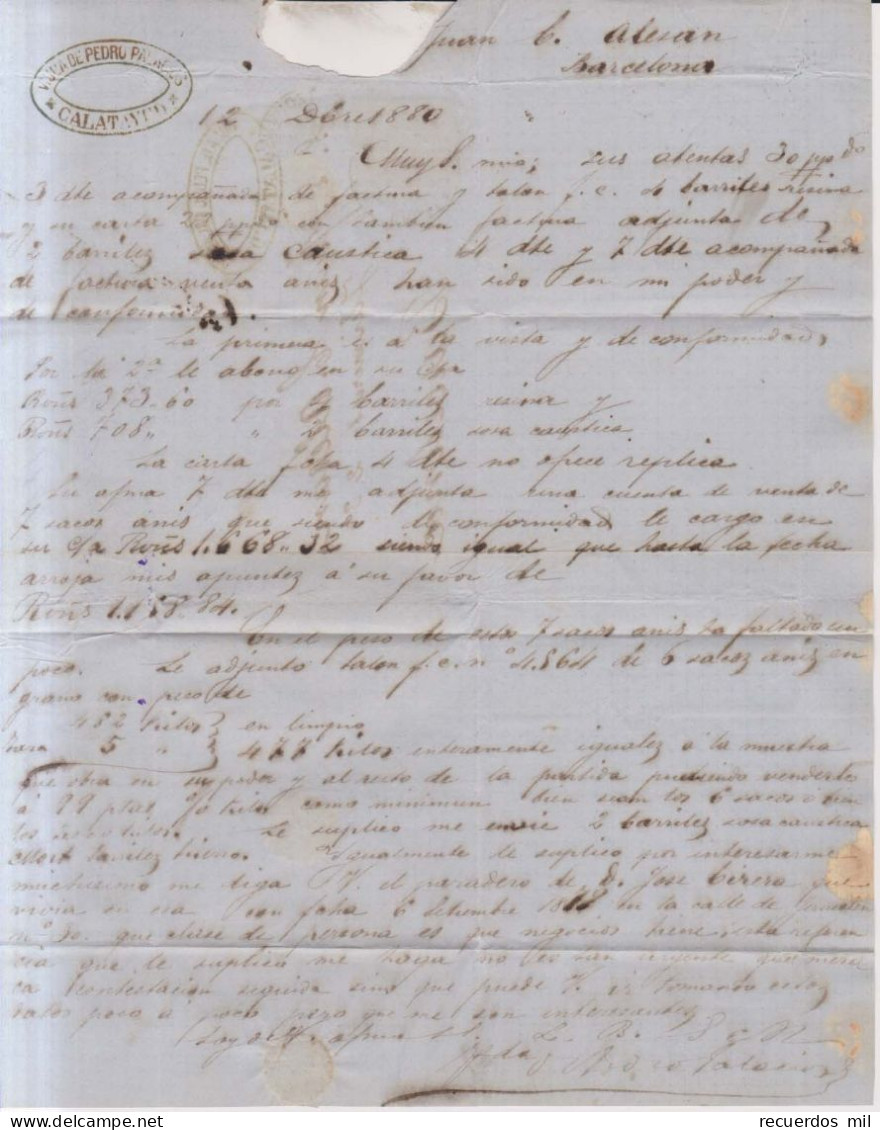 VIUDA DE PEDRO PALACIOS
CALATAYUD
Juan C. Alesan
Barcelona
12 Dbre 1880
Muy S. mio; sus atentas 30 ppdo
3 dbe acompañada de factura y talon f.c. 4 barriles resina
y su carta 2 con tambien factura adjunta de
2 barriles sosa caustica 4 dbe y 7 dbe acompañada
de factura venta anis han sido en mi poder y
de conformidad.
La primera es a la vista y de conformidad,
Por la 2ª le abono en su c/a
Rvñs 373.60 por 4 barriles resina y
Rvñs 708,, " 2 barriles sosa caustica
La carta fcha 4 dbe no ofece replica
Su apma 7 dbe me adjunta una cuenta de venta de
7 sacos anis que siendo de conformidad le cargo en
su c/a Rvñs 1.668,,32 siendo igual que hasta la fecha
arroja mis apuntez á su favor de
Rvñs 84.
En el peso de estos 7 sacos anis ha faltado un
poco. Le adjunto talon f.c. nº 4.864 de 6 sacoz aniz en
grano con peso de
482 kilos en limpio
Tara 5 " 477 kilos enteramente igualez á la muestra
que obra en su poder y al resto de la partida pudiendo venderlos
á 99 ptas % kilos como minimun bien sean los 6 sacos o bien
los kilos. Le suplico me envie 2 barrilez sosa caustica
barrilez hierro. Igualmente le suplico por interesarme
muchisimo me diga V. el paradero de D. José Cirera que
vivia en esa con fcha 6 Setiembre en la calle de
nº 30. que clase de persona es que negocios tiene, esta referen
cia que le suplico me haga no es tan urgente que merez
ca contestacion seguida sino que puede V. ir tomando estoz
datos poco á poco pero que me son interesantez
Soy de V. afma S.S. Q. B. S. M.
Vda de Pedro Palacios
recuerdos mil